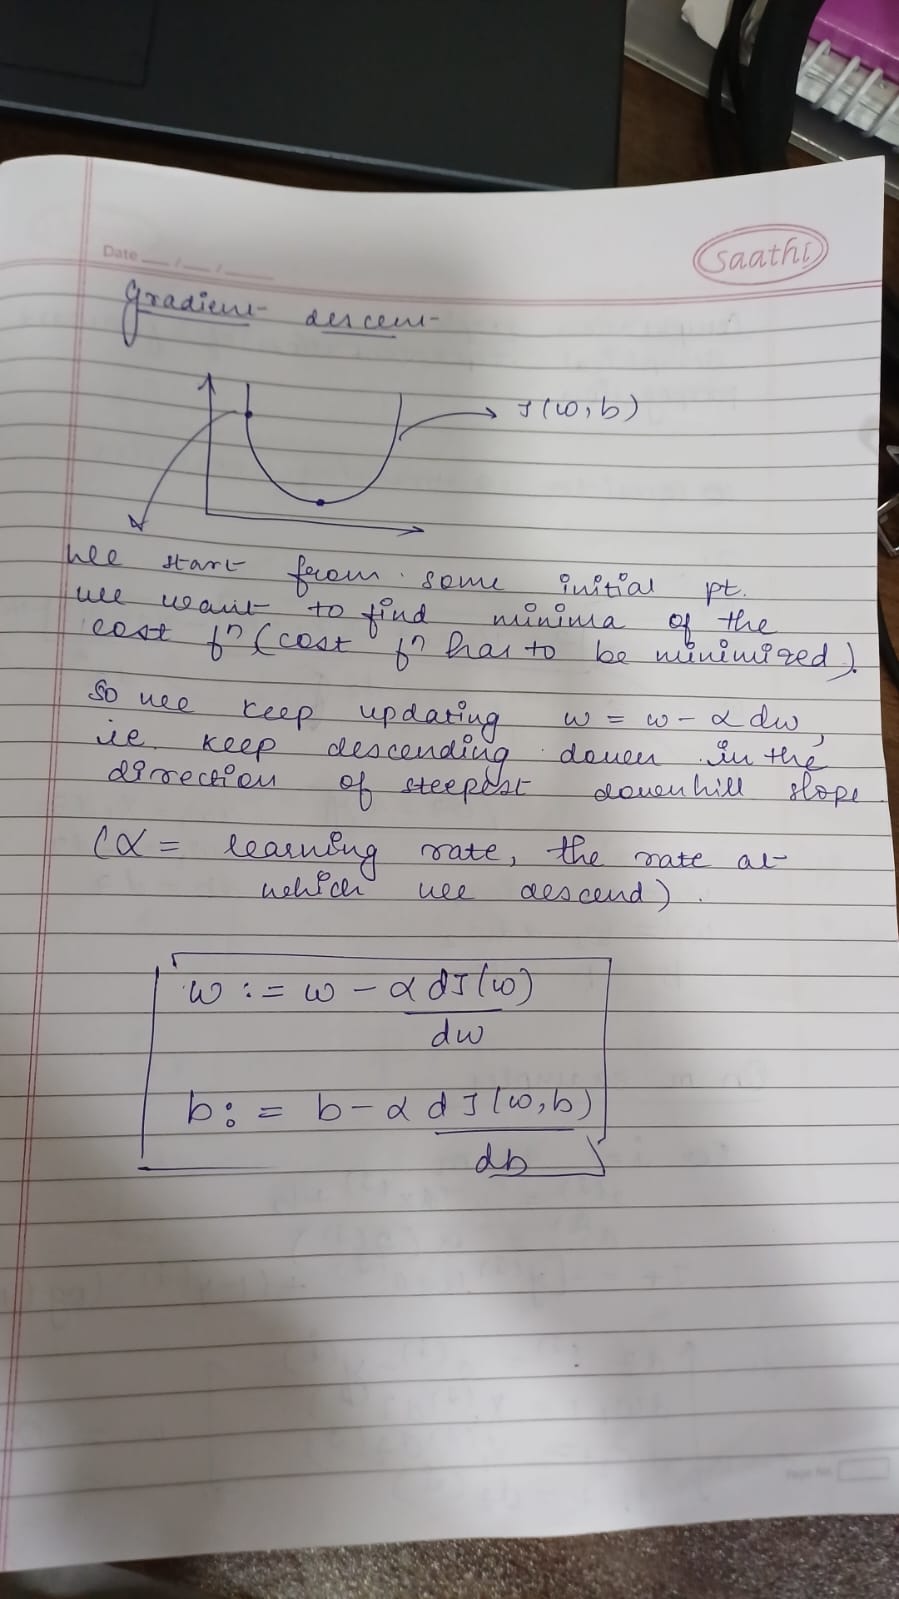 Date __/__/____
saathi
Gradient descent
J(w,b)
We start from some initial pt.
we want to find minima of the
cost fⁿ (cost fⁿ has to be minimized).
So we keep updating w = w - α dw,
i.e. keep descending down in the
direction of steepest downhill slope
(α = learning rate, the rate at
which we descend).
w := w - α dJ(w)
dw
b := b - α dJ(w,b)
db
Page No.